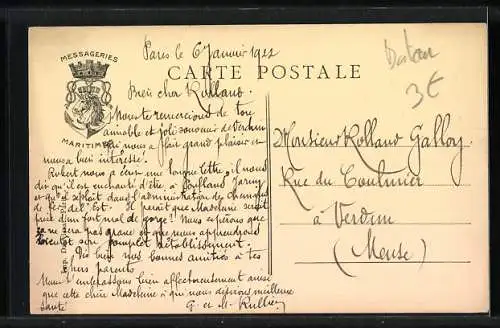 Paris le 6 Janvier 1922
MESSAGERIES
MARITIMES
CARTE POSTALE
Bien cher Rolland.
Nous te remercions de ton
aimable et joli souvenir de Verdun
qui nous a fait grand plaisir et
nous a bien intéressé.
Robert nous a écrit une longue lettre, il nous
dit qu'il est enchanté d'être à Conflans Jarny
et qu'il se plait dans l'administration des chemins
de fer de l'Est. Il paraît que Madeleine serait
prise d'un fort mal de gorge? Nous espérons que
ce ne sera pas grave et que nous apprendrons
bientôt son complet rétablissement.
Dis bien nos bonnes amitiés à tes
chers parents
Nous t'embrassons bien affectueusement ainsi
que cette chère Madeleine à qui nous désirons meilleure
santé
G. et M.
Monsieur Rolland Galloy.
Rue du
à Verdun
(Meuse)
3€